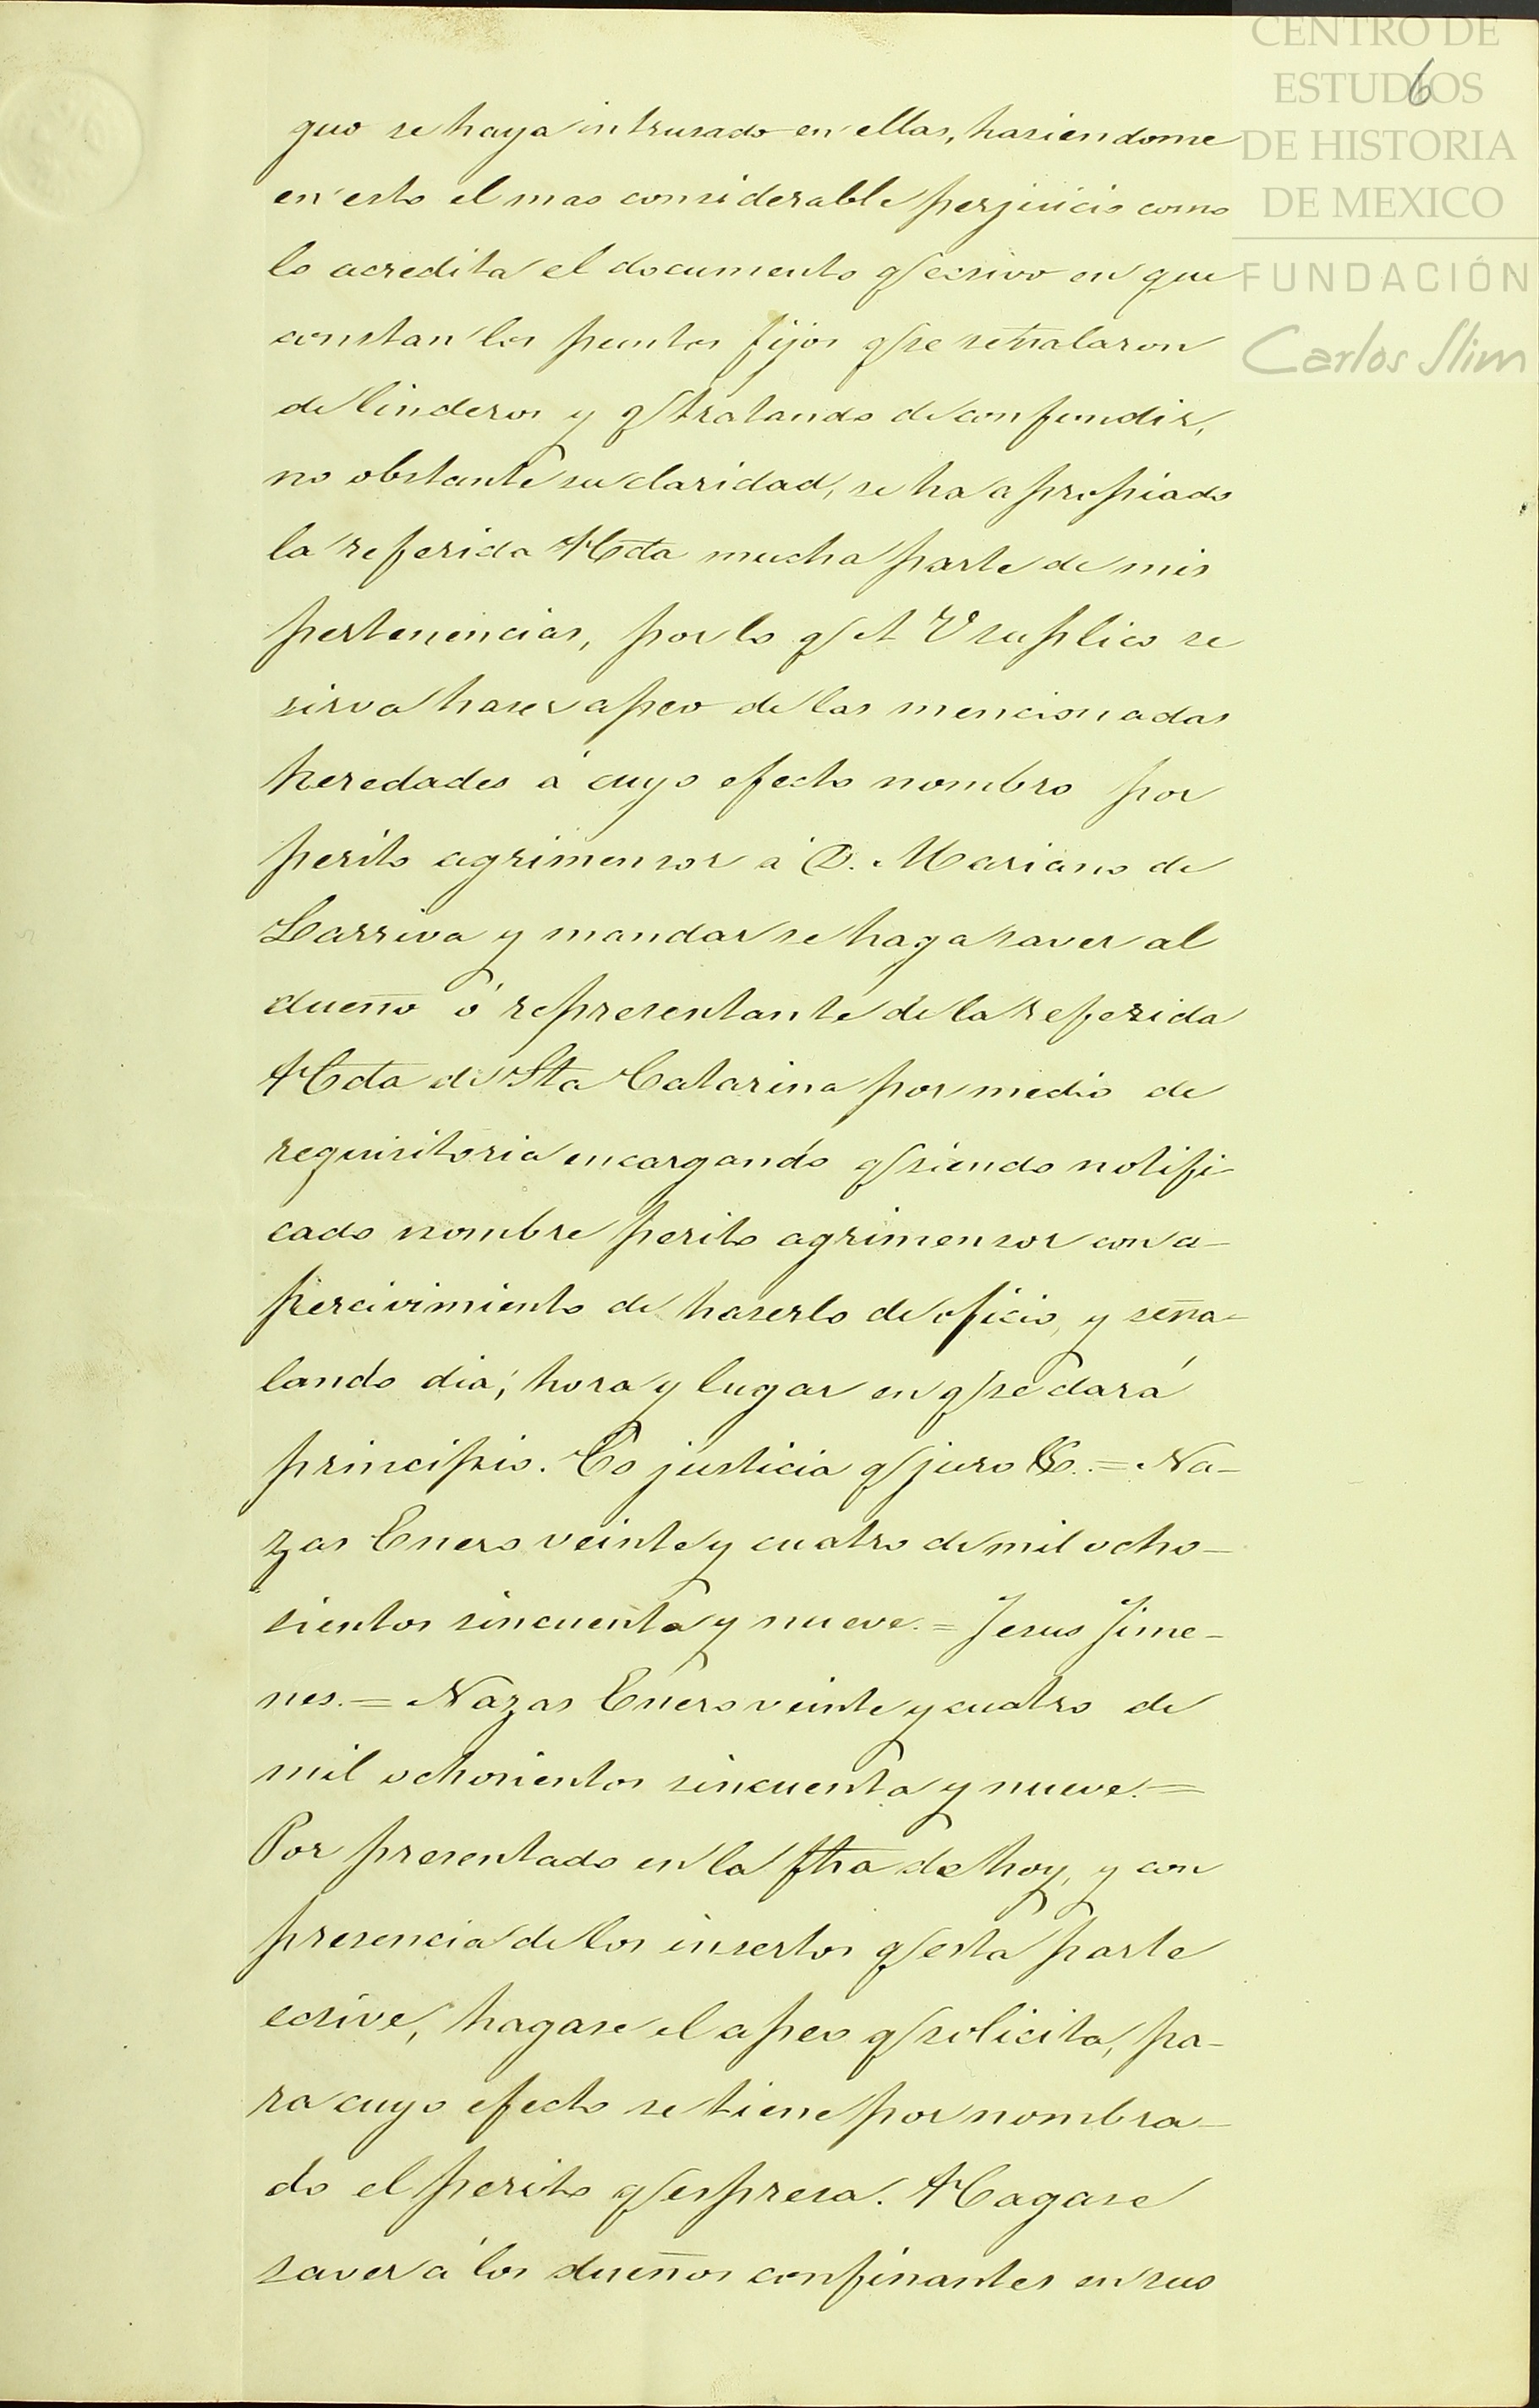 CENTRO DE
ESTUDIOS
DE HISTORIA
DE MEXICO
FUNDACIÓN
Carlos Slim
6
quo se haya intrusado en ellas, hasiendome
en esto el mas considerable perjuicio como
lo acredita el documento q/ ecsivo en que
constan los puntos fijos q/ se señalaron
de linderos y q/ tratando de confundir,
no obstante su claridad, se ha apropiado
la referida Hda mucha parte de mis
pertenencias, por lo q/ A V suplico se
sirva haser apeo de las mencionadas
heredades á cuyo efecto nombro por
perito agrimensor á D. Mariano de
Larriva y mandar se haga saver al
dueño ó representante de la referida
Hda de Sta Catarina por medio de
requisitoria encargando q/ siendo notifi-
cado nombre perito agrimensor con a-
percivimiento de haserlo de oficio, y seña-
lando dia, hora y lugar en q/ se dará
principio. Es justicia q/ juro &. = Na-
zas Enero veinte y cuatro de mil ocho-
sientos sincuenta y nueve. = Jesus Jime-
nes. = Nazas Enero veinte y cuatro de
mil ochosientos sincuenta y nueve. =
Por presentado en la fha de hoy, y con
presencia de los insertos q/ esta parte
ecsive, hagase el apeo q/ solicita, pa-
ra cuyo efecto se tiene por nombra-
do el perito q/ espresa. Hagase
saver á los dueños confinantes en sus